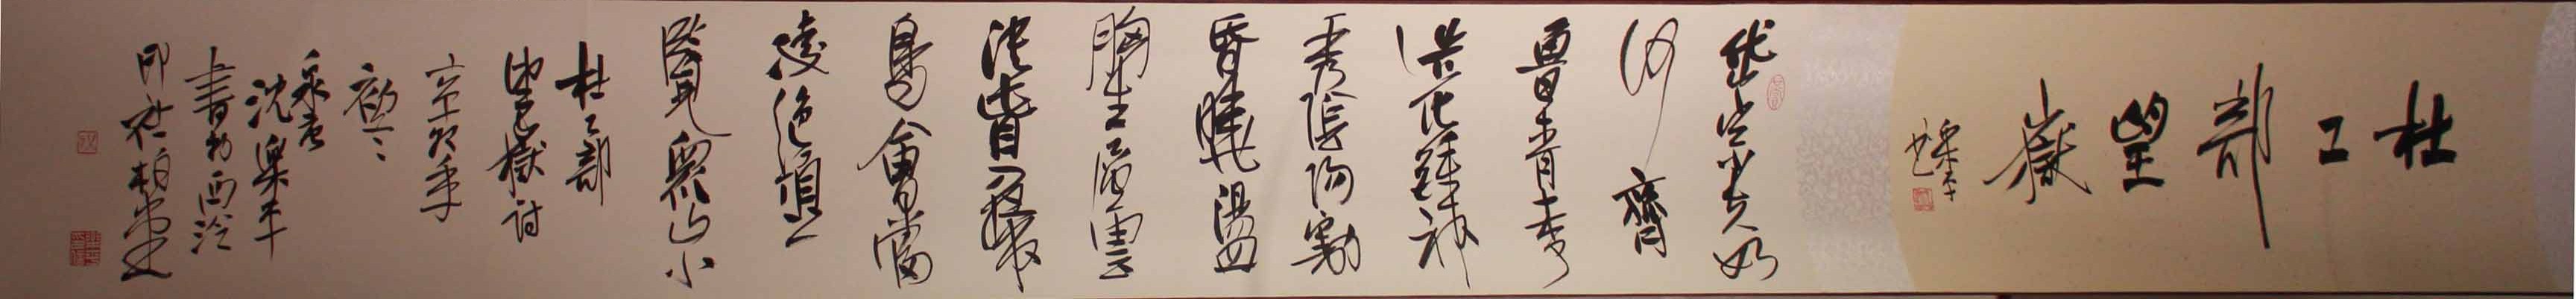 杜工部望嶽
樂平
岱宗夫如
何齊
魯青未了
造化鍾神
秀陰陽割
昏曉盪
胸生層雲
決眥入歸
鳥會當
凌絕頂一
覽眾山小
杜工部
望嶽詩
辛卯年
初
泉唐
沈樂平
書於西泠
印社柏堂